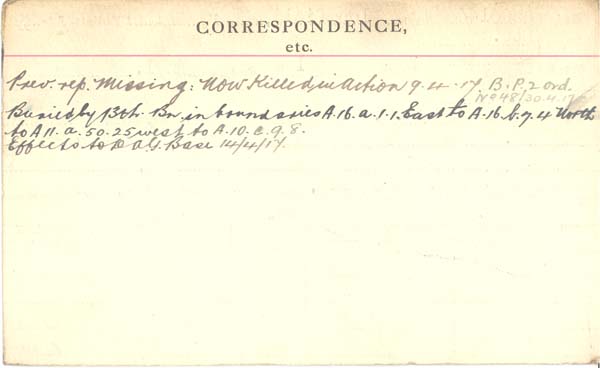 CORRESPONDENCE,
etc.
Prev. rep. Missing: Now Killed in Action 9.4.17. B.P.2 ord.
No 48/30.4.17
Buried by 13th. Bn. in boundaries A.16.a.1.1. East to A.16.b.7.4 North
to A 11.a.50.25 west to A.10.c.9.8.
Effects to D.A.G. Base 14/4/17.